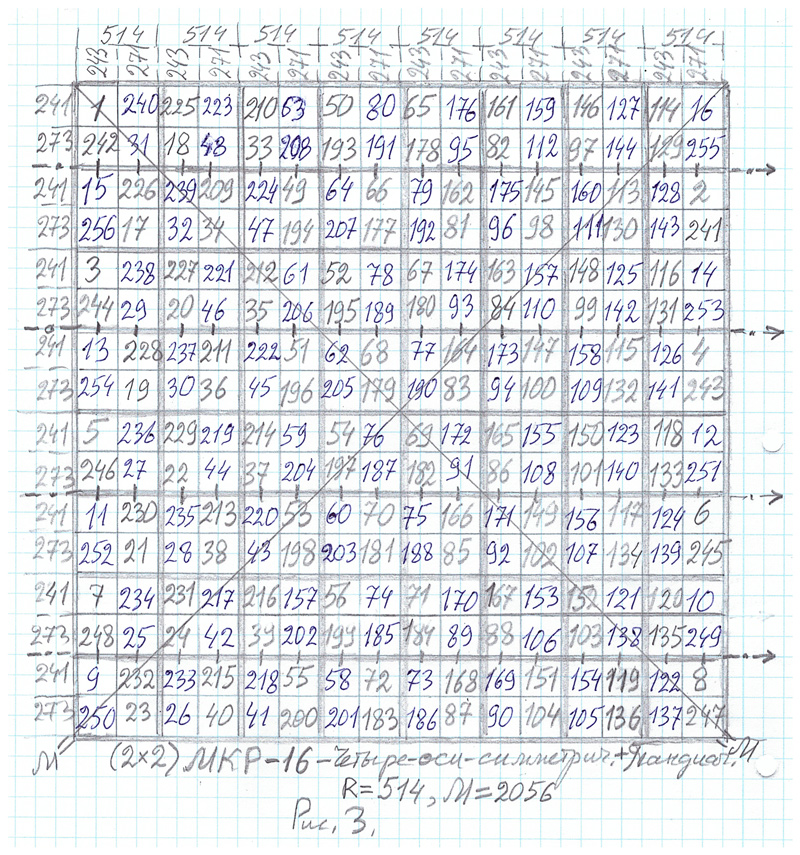 514 514 514 514 514 514 514 514
243 271 243 271 243 271 243 271 243 271 243 271 243 271 243 271
241 1 240 225 223 210 63 50 80 65 176 161 159 146 127 114 16
273 242 31 18 48 33 208 193 191 178 95 82 112 97 144 129 255
241 15 226 239 209 224 49 64 66 79 162 175 145 160 113 128 2
273 256 17 32 34 47 194 207 177 192 81 96 98 111 130 143 241
241 3 238 227 221 212 61 52 78 67 174 163 157 148 125 116 14
273 244 29 20 46 35 206 195 189 180 93 84 110 99 142 131 253
241 13 228 237 211 222 51 62 68 77 164 173 147 158 115 126 4
273 254 19 30 36 45 196 205 179 190 83 94 100 109 132 141 243
241 5 236 229 219 214 59 54 76 69 172 165 155 150 123 118 12
273 246 27 22 44 37 204 197 187 182 91 86 108 101 140 133 251
241 11 230 235 213 220 53 60 70 75 166 171 149 156 117 124 6
273 252 21 28 38 43 198 203 181 188 85 92 102 107 134 139 245
241 7 234 231 217 216 157 56 74 71 170 167 153 152 121 120 10
273 248 25 24 42 39 202 199 185 184 89 88 106 103 138 135 249
241 9 232 233 215 218 55 58 72 73 168 169 151 154 119 122 8
273 250 23 26 40 41 200 201 183 186 87 90 104 105 136 137 247
М М
(2×2) МКР-16-Четыре-оси-симметрич.+Пандиаг.
R=514, М=2056
Рис. 3.